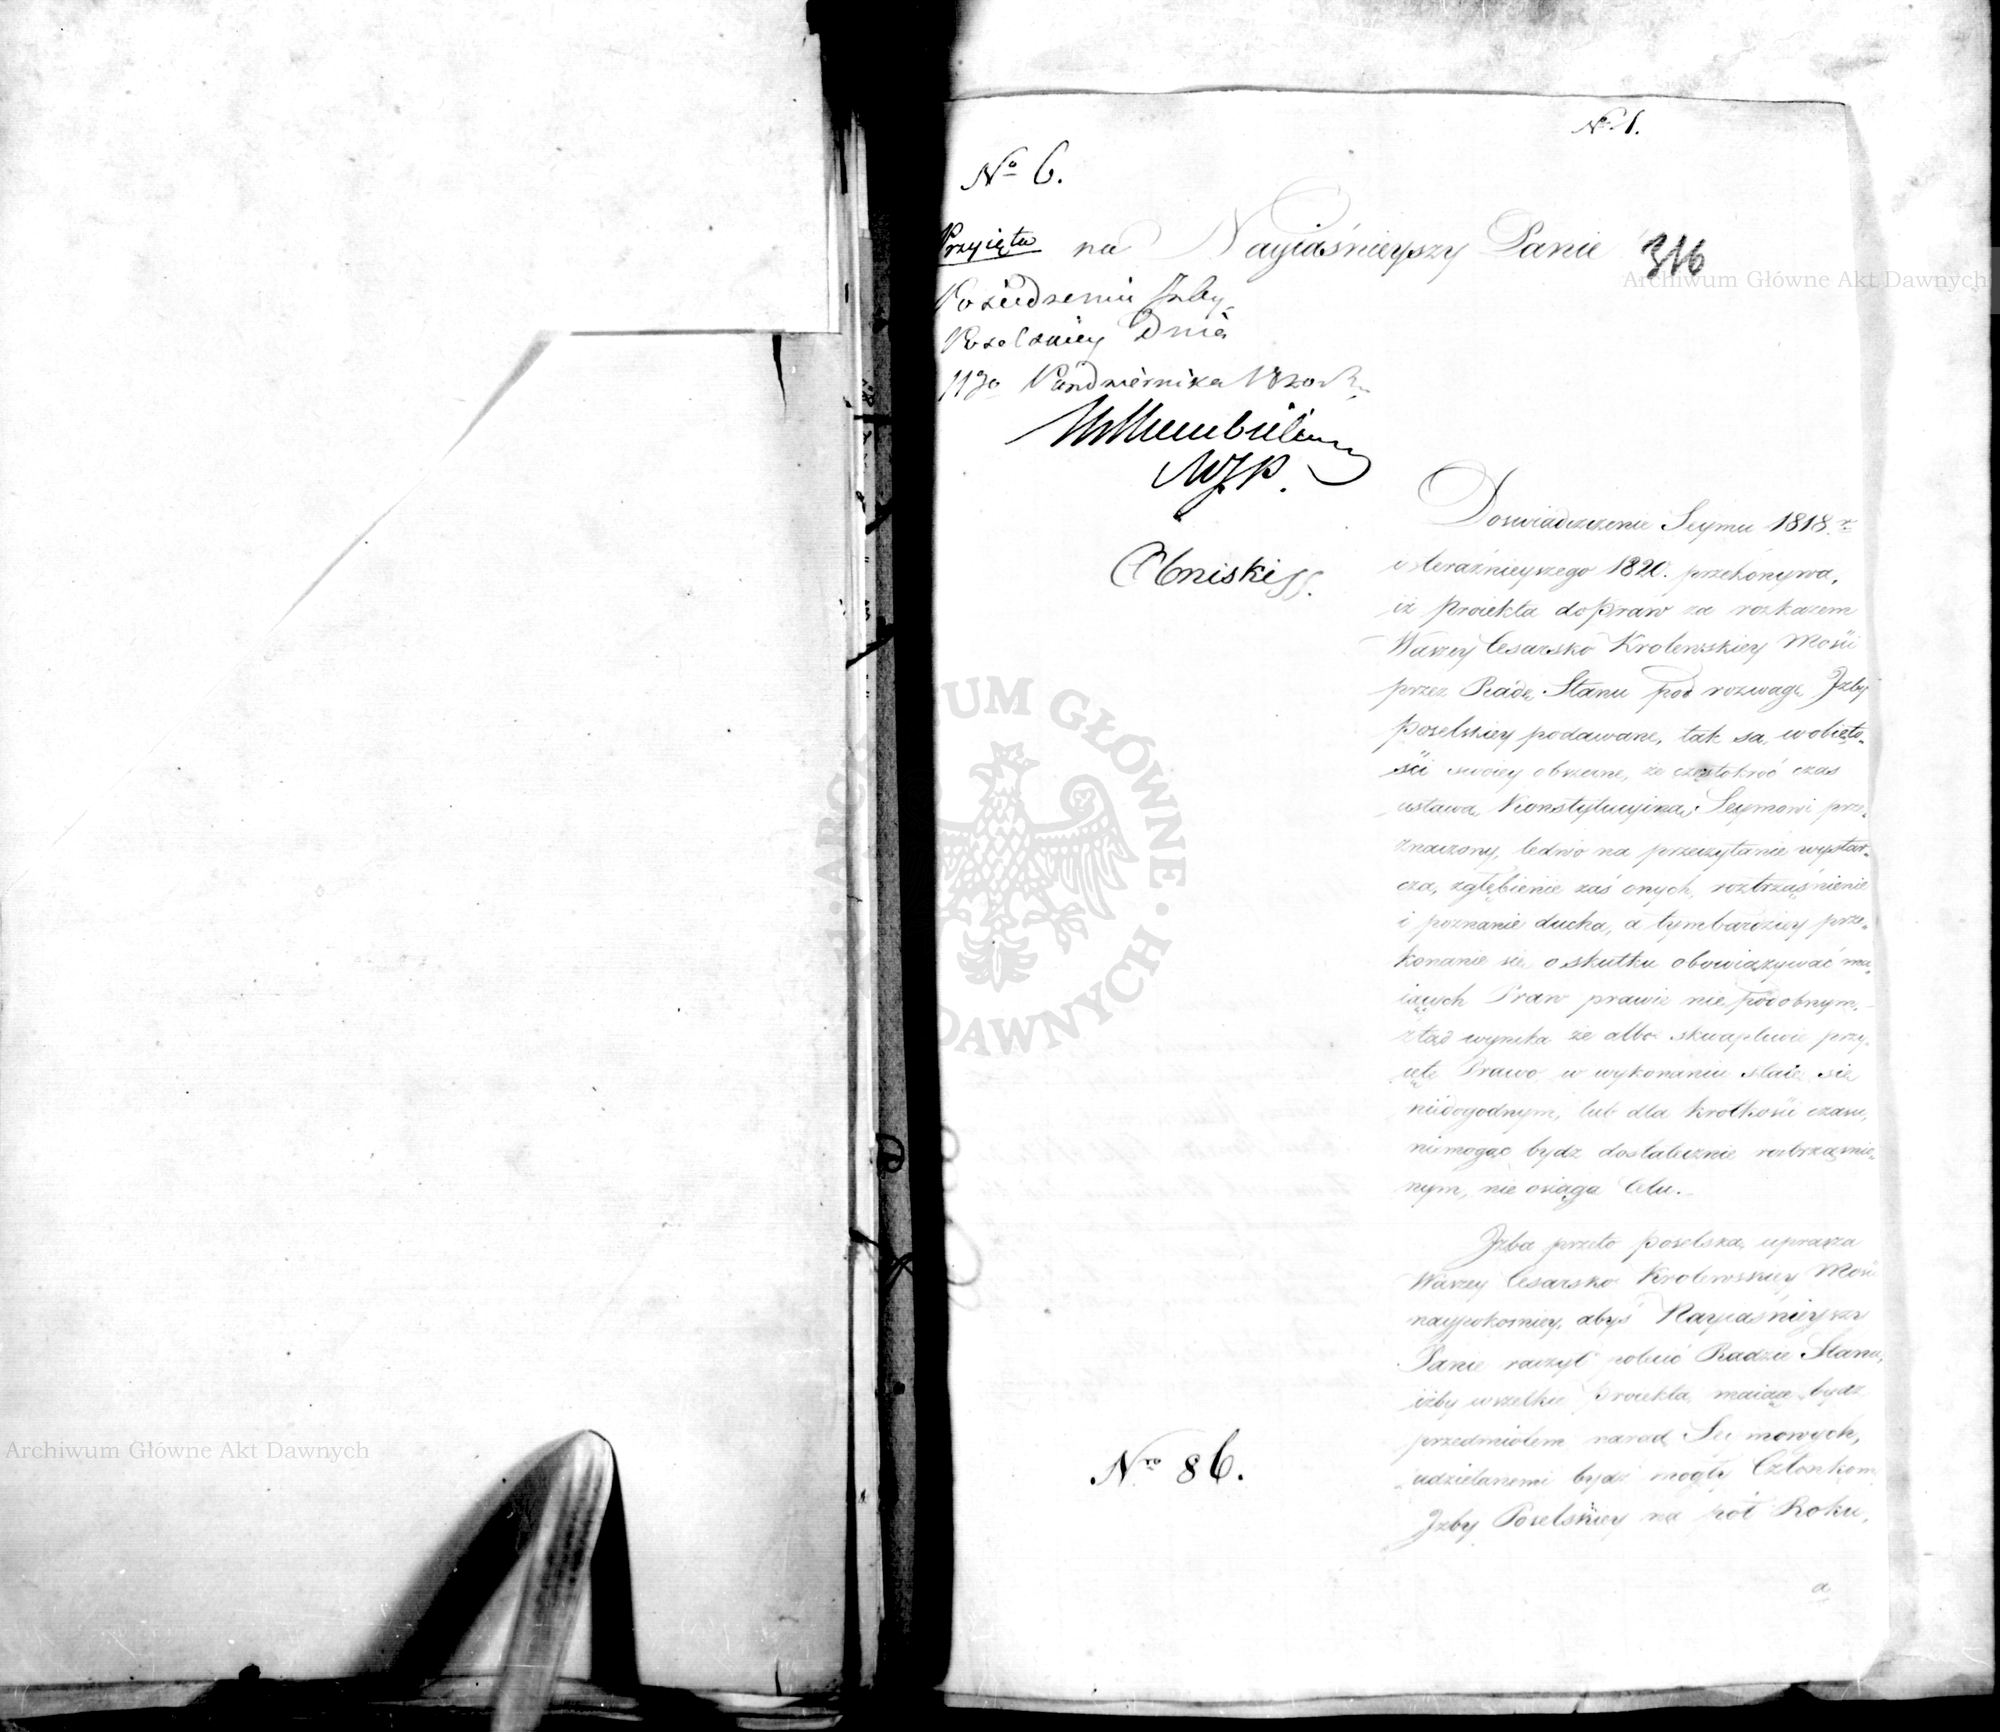 No 1.
No 6.
Nayiaśnieyszy Panie
316
Przyięta na
Posiedzeniu Izby
Poselskiey Dnia
11go Października 1820 R.
MJP.
Doświadczenie Seymu 1818. r.
i teraźnieyszego 1820. przekonywa,
iż Proiekta do Praw za rozkazem
Waszey Cesarsko Krolewskiey Mości
przez Radę Stanu pod rozwagę Izby
Poselskiey podawane, tak są, w obięto-
ści swoiey obszerne, że częstokroć czas
ustawą Konstytucyiną Seymowi prze-
znaczony, ledwo na przeczytanie wystar-
cza, zgłębienie zaś onych, roztrząśnienie
i poznanie ducha, a tymbardziey prze-
konanie się o skutku obowiązywać ma-
iących Praw prawie nie podobnym.
ztąd wynika że albo skwapliwie przy-
ięte Prawo w wykonaniu staie się
niedogodnym, lub dla krotkości czasu,
niemogąc bydz dostatecznie roztrząśnie-
nym, nie osiąga Celu.
Izba przeto Poselska, uprasza
Waszey Cesarsko Krolewskiey Mości
naypokorniey, abyś Nayiaśnieyszy
Panie raczył polecić Radzie Stanu,
iżby wszelkie Proiekta, maiące bydz
przedmiotem narad Seymowych,
udzielanemi bydź mogły Członkom
Izby Poselskiey na poł Roku,
a
Nro 86.
Archiwum Główne Akt Dawnych
Archiwum Główne Akt Dawnych
ARCHIWUM GŁÓWNE AKT DAWNYCH